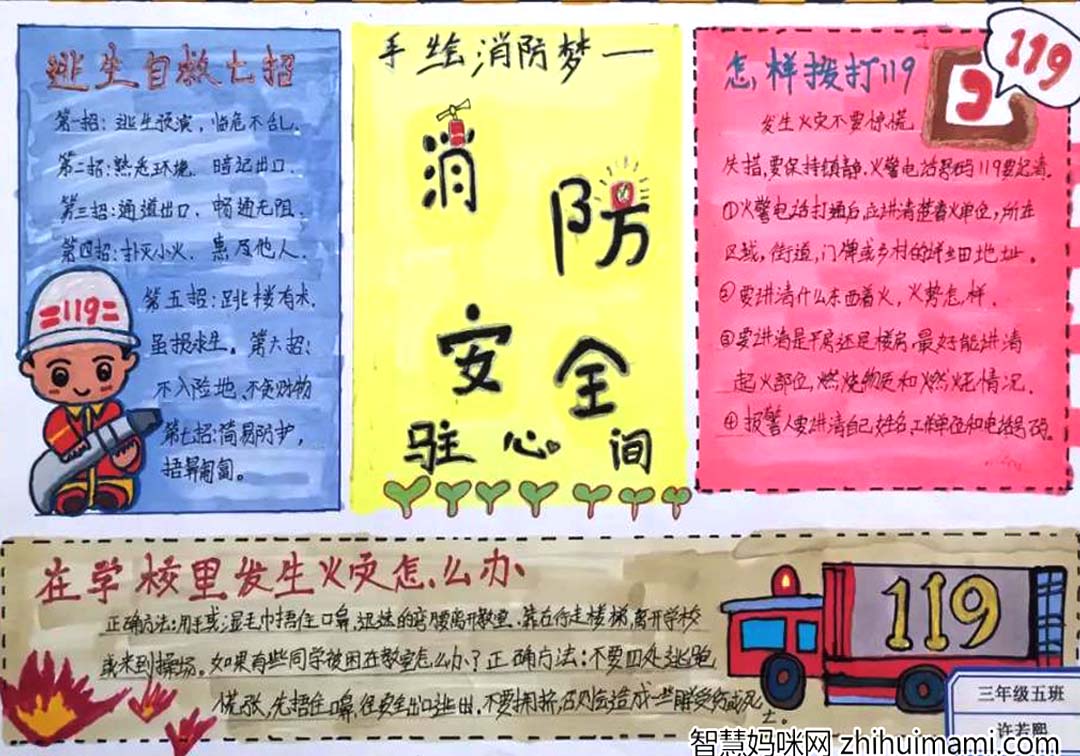 逃生自救七招
第一招：逃生预演，临危不乱.
第二招：熟悉环境．暗记出口．
第三招：通道出口．畅通无阻．
第四招：扑灭小火．惠及他人．
第五招：跳楼有术．
虽损求生。第六招：
不入险地．不贪财物
第七招：简易防护，
捂鼻匍匐。
=119=
手绘消防梦——
消
防
安
全
驻心间
怎样拨打119
119
发生火灾不要惊慌
失措，要保持镇静．火警电话号码119要记清．
①火警电话打通后，应讲清楚着火单位，所在
区域，街道，门牌或乡村的详细地址．
②要讲清什么东西着火，火势怎样．
③要讲清是平房还是楼房，最好能讲清
起火部位，燃烧物质和燃烧情况．
④报警人要讲清自己姓名，工作单位和电话号码。
在学校里发生火灾怎么办
正确方法：用手或湿毛巾捂住口鼻，迅速的弯腰离开教室．靠右行走楼梯，离开学校
或来到操场。如果有些同学被困在教室怎么办？正确方法：不要四处逃跑
慌张，先捂住口鼻，往安全出口逃出，不要拥挤，否则会造成一些踩受伤或死
亡．
119
三年级五班
许若熙
智慧妈咪网 zhihuimami.com